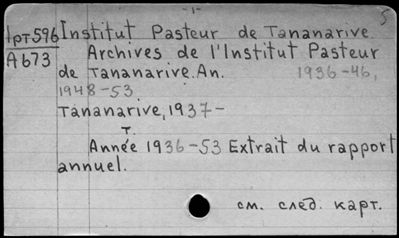 -1-
5
IPT596 Institut Pasteur de Tananarive.
A673 Archives de l'Institut Pasteur
de Tananarive. An. 1936-46,
1948-53
Tananarive, 1937-
T.
Année 1936-53 Extrait du rapport
annuel.
см. след. карт.